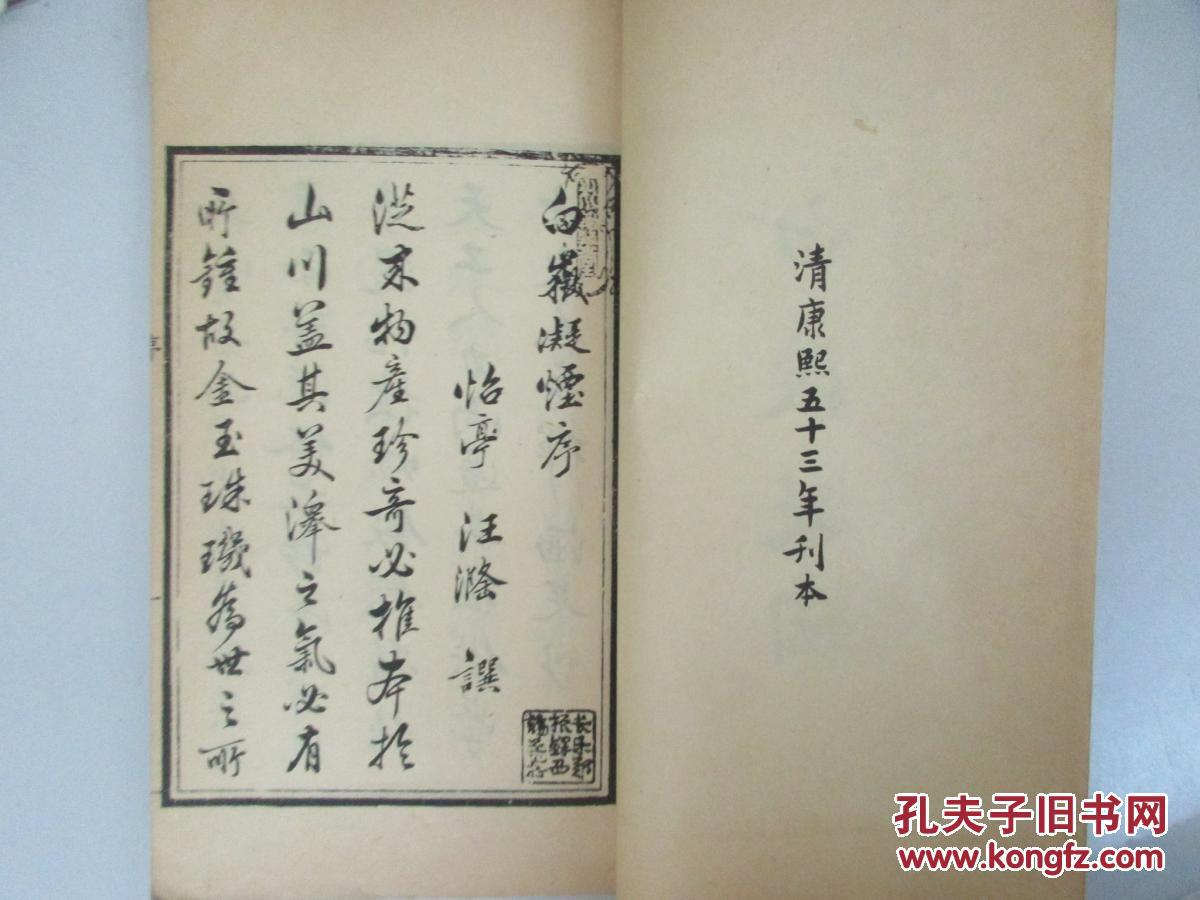 清康熙五十三年刊本
白嶽凝煙序
怡亭 汪滌 譔
從來物產珍奇必推本於
山川蓋其美澤之氣必有
所鍾故金玉珠璣為世之所
序
長樂鄭
振鐸西
諦藏書
孔夫子旧书网
www.kongfz.com